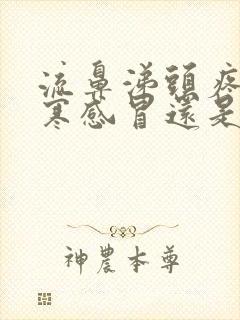 流鼻涕頭疼
寒感冒還是
神農本尊